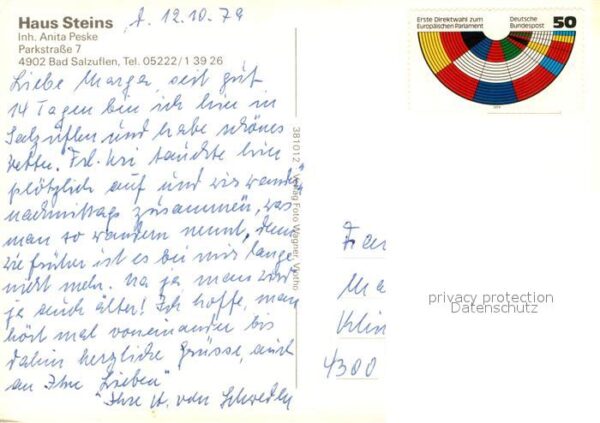 Haus Steins
Inh. Anita Peske
Parkstraße 7
4902 Bad Salzuflen, Tel. 05222/1 39 26
d. 12.10.79
Liebe Marga, seit gut
14 Tagen bin ich hier in
Salzuflen und habe schönes
Wetter. Frl. Kri tauchte hier
plötzlich auf und wir wandern
nachmittags zusammen, was
man so wandern nennt, denn
wie früher ist es bei mir lange
nicht mehr. Na ja man wird
ja auch älter! Ich hoffe, man
hört mal voneinander bis
dahin herzliche Grüsse, auch
an Ihre Lieben
Ihre v. von
381012 Verlag Foto Wagner, Vlotho
Erste Direktwahl zum Europäischen Parlament
Deutsche Bundespost
50
Frau
Ma
Klin
4300
privacy protection
Datenschutz